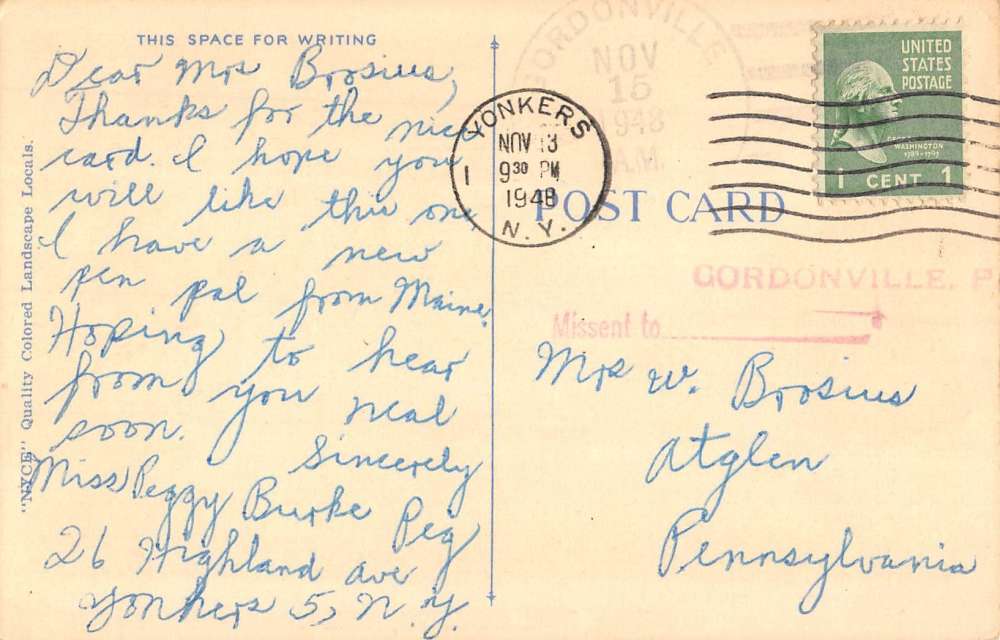 THIS SPACE FOR WRITING
Dear Mrs Brosius,
Thanks for the nice
card. I hope you
will like this one,
I have a new
pen pal from Maine.
Hoping to hear
from you real
soon.
Sincerely
Miss Peggy Burke Peg
26 Highland ave
Yonkers 5, N.Y.
"NYCE" Quality Colored Landscape Locals.
GORDONVILLE
NOV
15
1948
A.M.
YONKERS
NOV 13
1 9 30 PM
1948
N.Y.
UNITED
STATES
POSTAGE
GEORGE
WASHINGTON
1789-1797
1 CENT 1
POST CARD
GORDONVILLE, P
Missent to
Mrs W. Brosius
Atglen
Pennsylvania